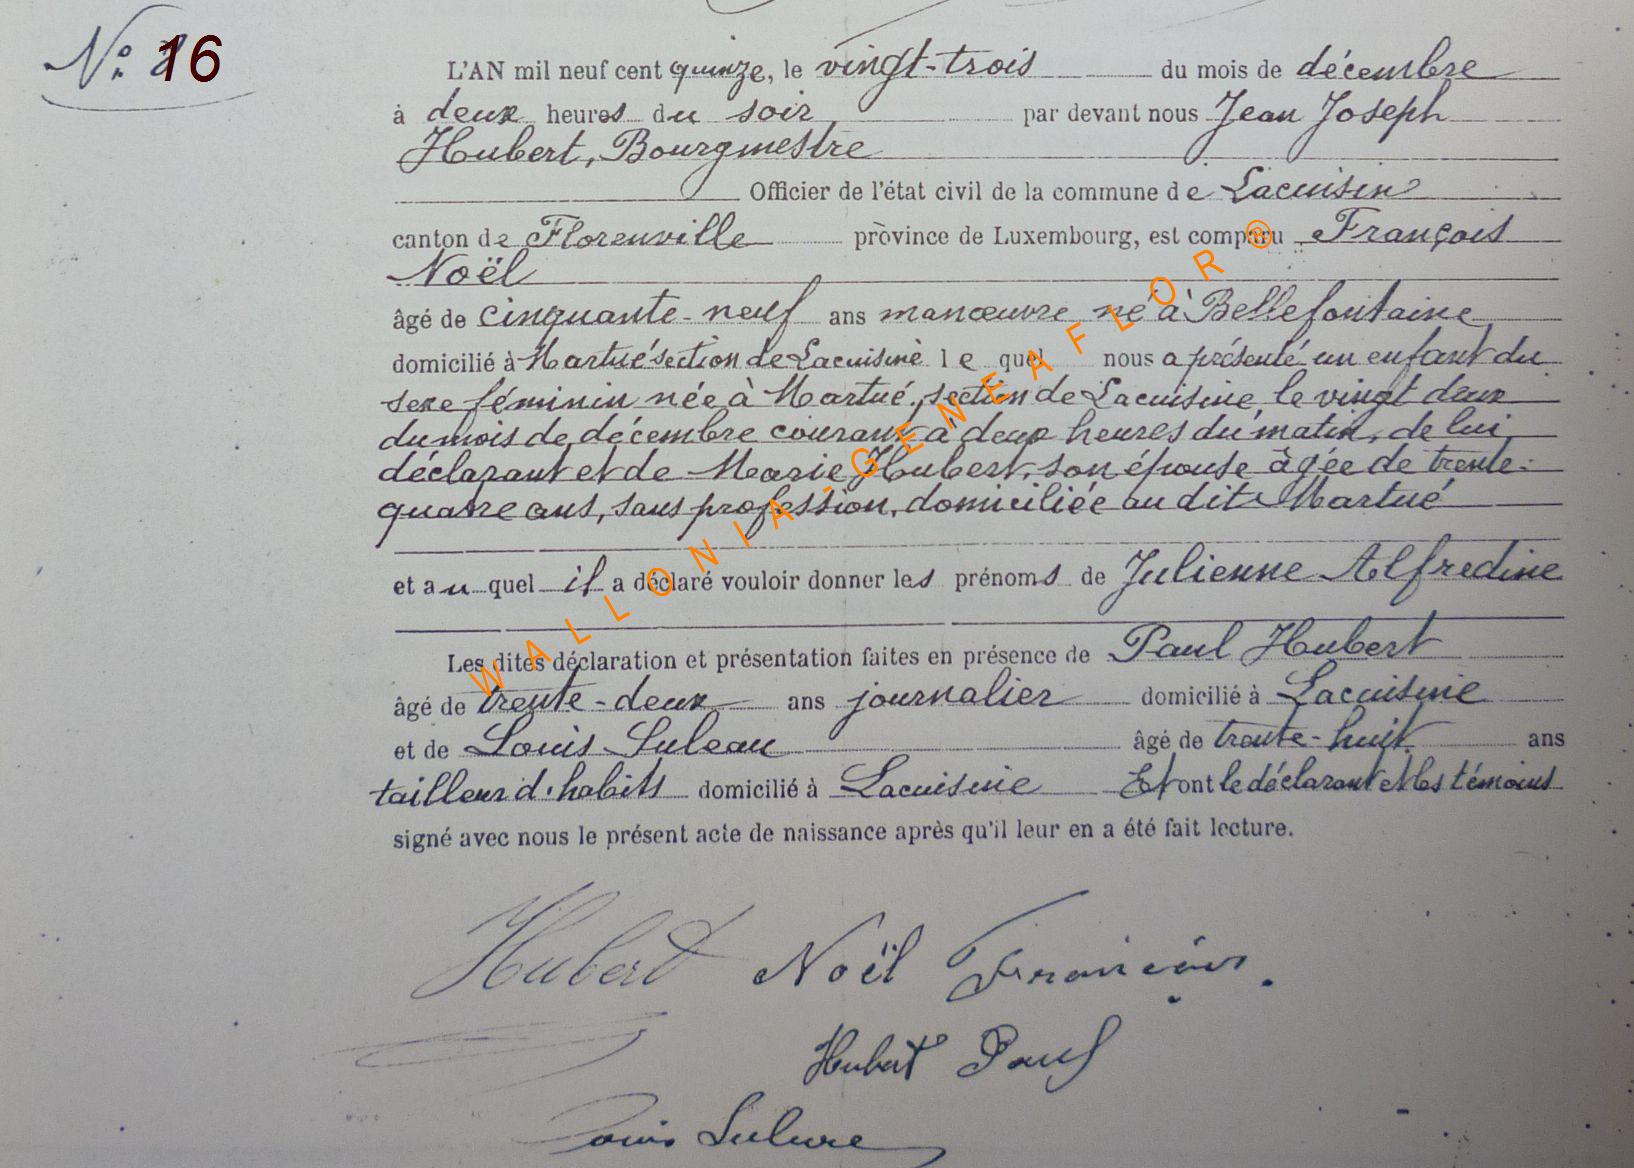 N° 16
L'AN mil neuf cent quinze, le vingt-trois du mois de décembre
à deux heures du soir par devant nous Jean Joseph
Hubert, Bourgmestre
Officier de l'état civil de la commune de Lacuisine
canton de Florenville province de Luxembourg, est comparu François
Noël
âgé de cinquante-neuf ans manœuvre né à Bellefontaine
domicilié à Martué section de Lacuisine lequel nous a présenté un enfant du
sexe féminin née à Martué, section de Lacuisine, le vingt deux
du mois de décembre courant à deux heures du matin, de lui
déclarant et de Marie Hubert, son épouse âgée de trente-
quatre ans, sans profession, domiciliée au dit Martué
et auquel il a déclaré vouloir donner les prénoms de Julienne Alfredine
Les dites déclaration et présentation faites en présence de Paul Hubert
âgé de trente-deux ans journalier domicilié à Lacuisine
et de Louis Suleau âgé de trente-huit ans
tailleur d'habits domicilié à Lacuisine Et ont le déclarant et les témoins
signé avec nous le présent acte de naissance après qu'il leur en a été fait lecture.
Hubert Noël François.
Hubert Paul
Louis
WALLONIA-GENEAFLOR®